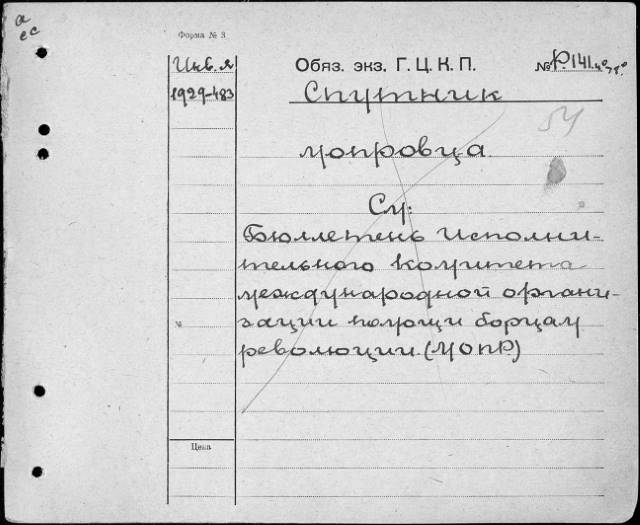 а
ес
Форма № 3
Инв. я
Обяз. экз. Г. Ц. К. П.
№ Р. 141.
1929-483
Спутник
54
мопровца
См:
Бюллетень Исполни-
тельного Комитета
международной органи-
зации помощи борцам
революции. (МОПР)
№
Цена